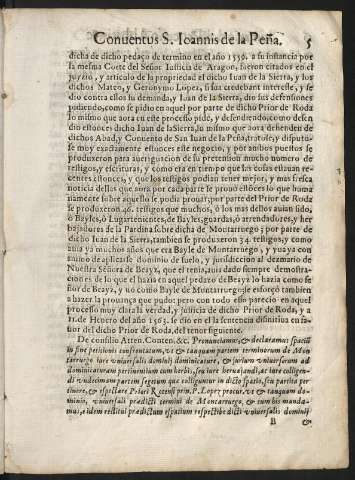 Conuentus S. Ioannis de la Peña. 5
dicha de dicho pedaço de termino en el año 1556. a su instancia por
la mesma Corte del Señor Iusticia de Aragon, fueron citados en el
juyzio, y articulo de la propriedad el dicho Iuan de la Sierra, y los
dichos Mateo, y Geronymo Lopez, si sua credebant interesse, y se
dio contra ellos su demanda, y Iuan de la Sierra, dio sus defensiones
pidiendo, como se pidio en aquel por parte de dicho Prior de Roda
lo mismo que aora en este processo pide, y defendiendo, como defen
dio estonces dicho Iuan de la Sierra, lo mismo que aora defienden
dichos Abad, y Conuento de San Iuan de la Peña, tratose, y disputo-
se muy exactamente estonces este negocio, y por ambos puestos se
produxeron para aueriguacion de su pretension mucho numero de
testigos, y escrituras, y como era en tiempo que las cosas estauan re-
centes estonces, y que los testigos podian tener mejor, y mas fresca
noticia dellos que aora por cada parte se prouo estonces lo que huma
namente sobre aquello se podia prouar; por parte del Prior de Roda
se produxeron 46. testigos que muchos, ò los mas dellos auian sido,
ò Bayles, ò Lugartenientes, de Bayles, guardas, ò arrendadores, y her
bajadores de la Pardina sobre dicha de Montarruego; por parte de
dicho Iuan de la Sierra, tambien se produxeron 34. testigos, y como
auia ya muchos años que era Bayle de Montarruego, y yua ya con
animo de aplicarse dominio de suelo, y jurisdiccion al dezmario de
Nuestra Señora de Beayz, que el tenia, auia dado siempre demostra-
ciones de lo que el hazia en aquel pedazo de Beayz lo hazia como se
ñor de Beayz, y no como Bayle de Montarruego, se esforçò tambien
a hazer la prouança que pudo; pero con todo esso parecio en aquel
processo muy clara la verdad, y justicia de dicho Prior de Roda, y a
11. de Hebrero del año 1563. se dio en el la sentencia difinitiua en fa-
uor del dicho Prior de Roda, del tenor siguiente.
De consilio Atten. Conten. &c. Pronunciamus, & declaramus spacium
in fine petitionis confrentatum, vt & tanquam partem terminorum de Mon
tarruego iure vniuersalis dominij dominicaturæ, & iurium vniuersorum ad
dominicaturam pertinentium cum herbis, seu iure herbajandi, ac iure colligen-
di vndecimam partem segetum que colliguntur in dicto spatio, seu partita per-
tinere, & expectare Priori Recensi prin. P. Lopez procur. vt & tanquam do-
minio, vniuersali prædicti termini de Montarruego, & cum his manda-
mus, eidem restitui prædictum espatium respectiuè dicti vniuersalis dominij
B &